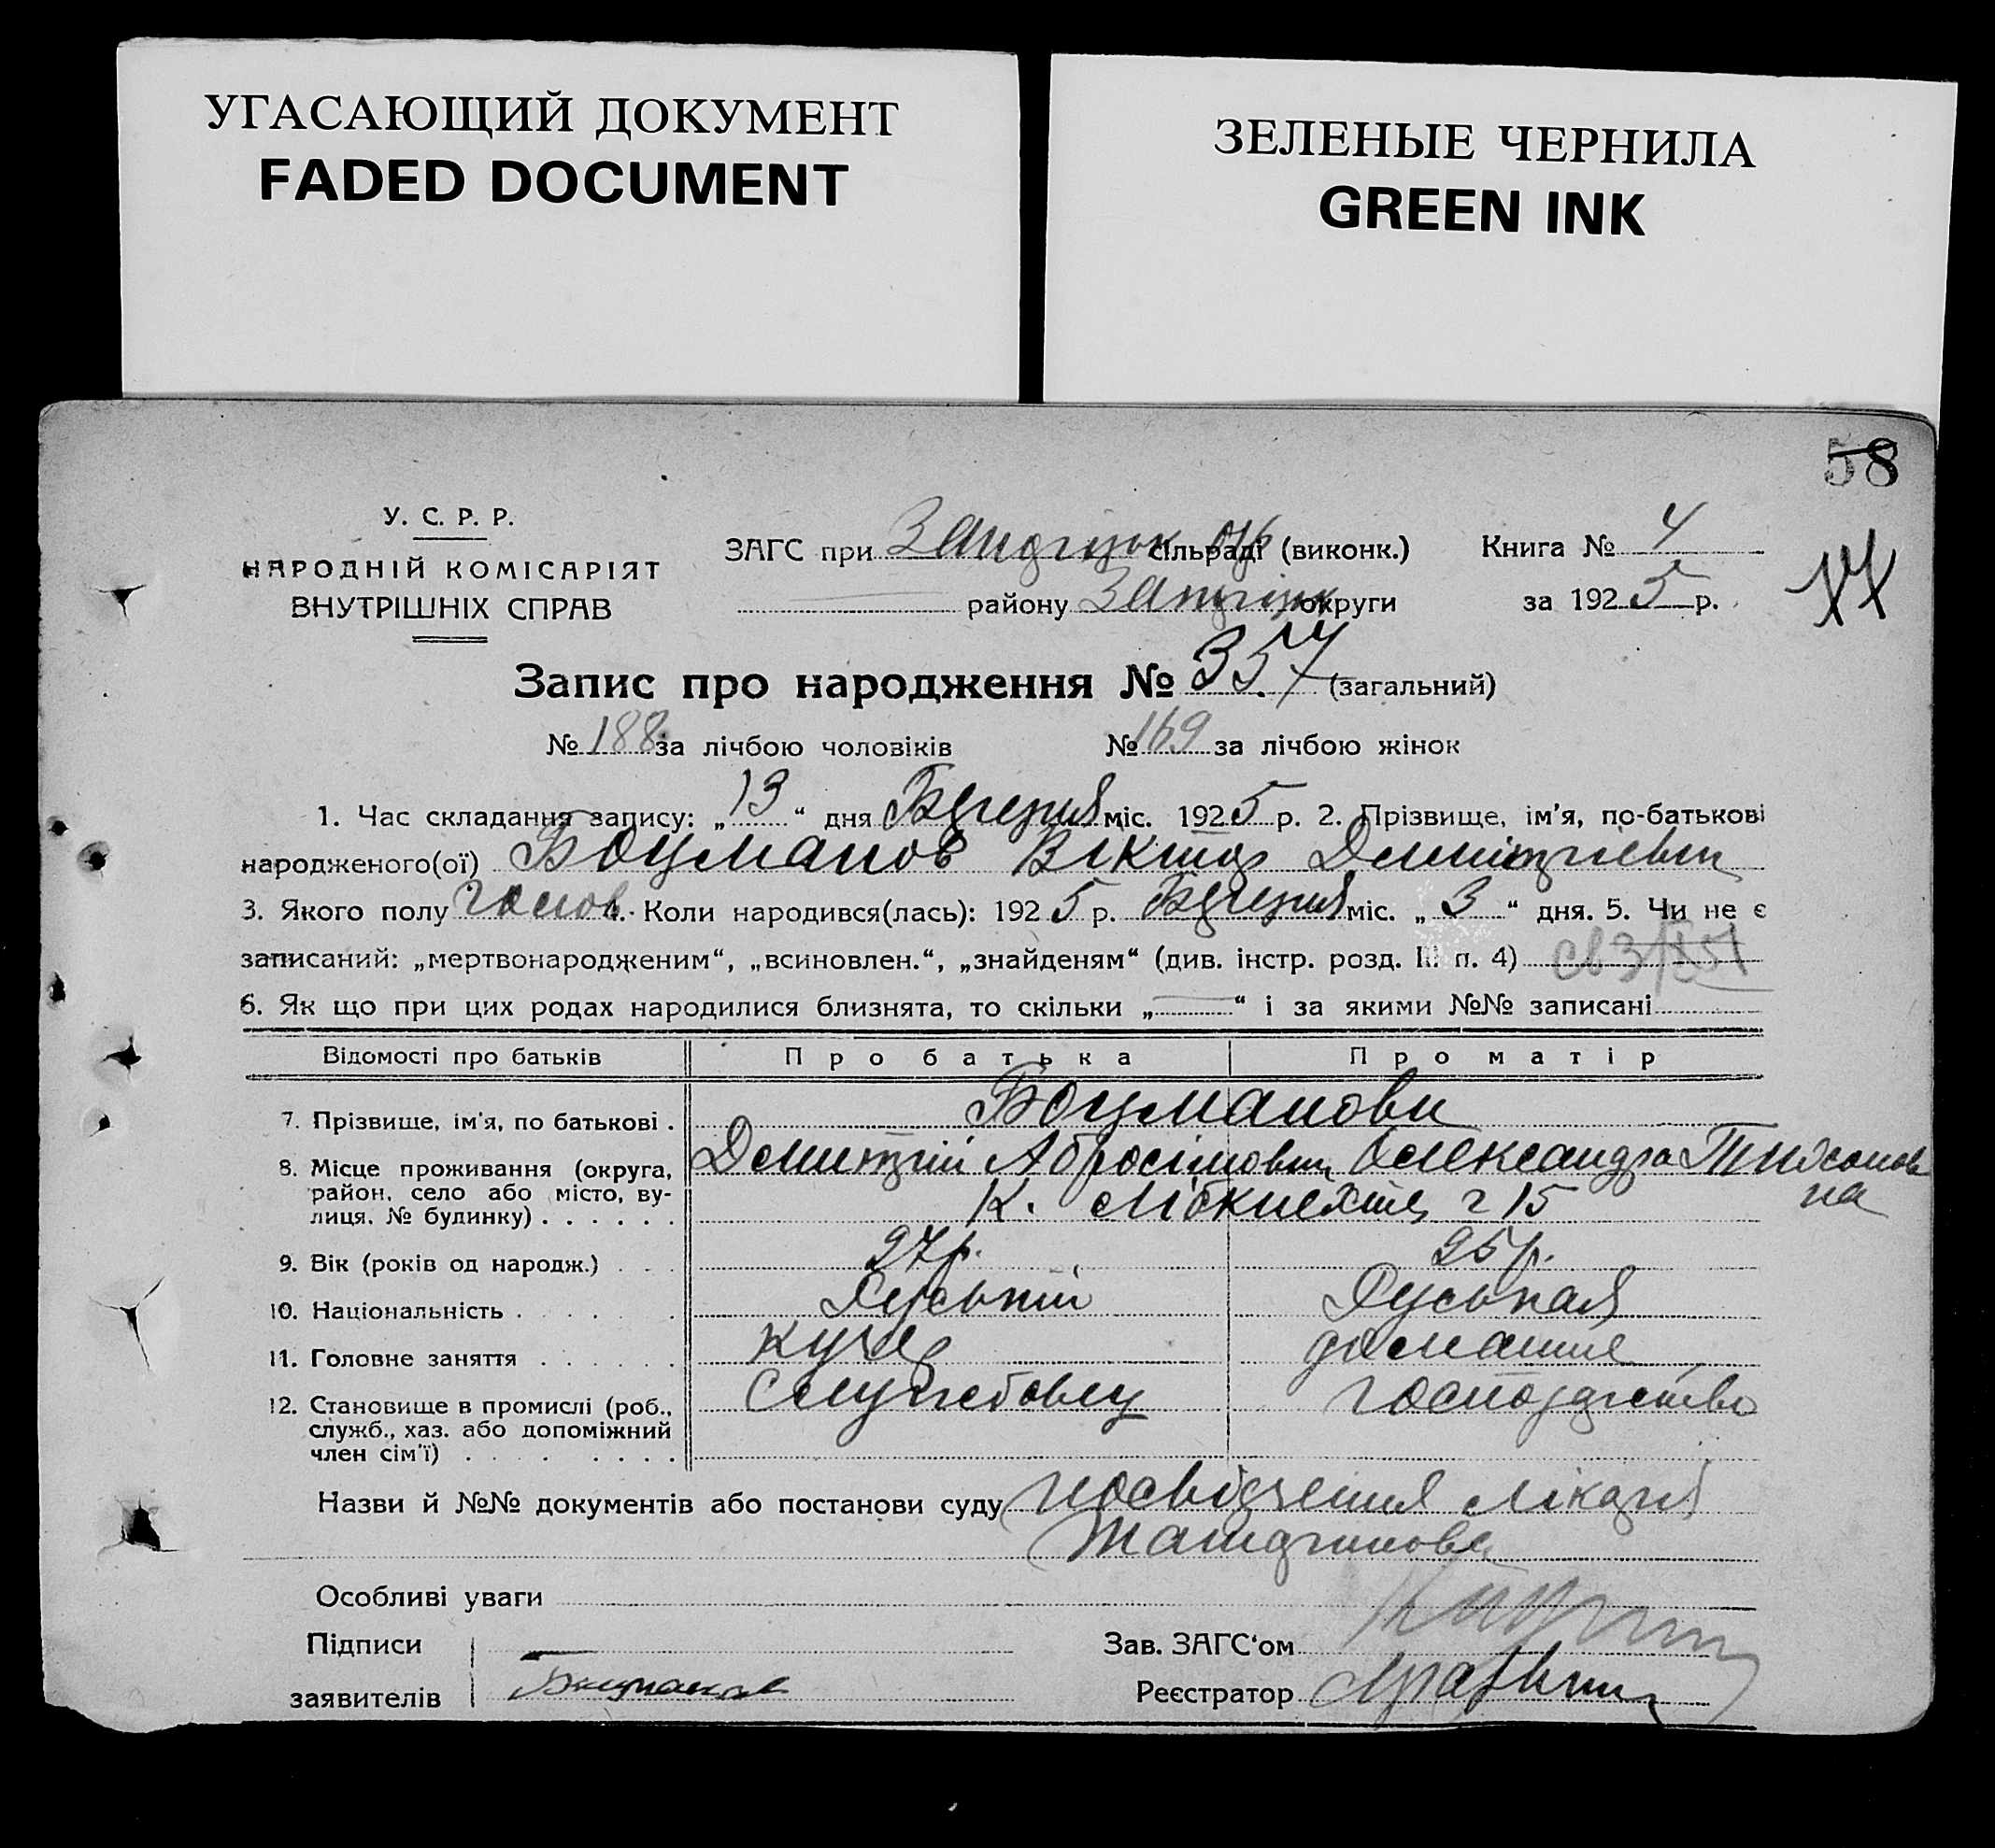 УГАСАЮЩИЙ ДОКУМЕНТ
FADED DOCUMENT
ЗЕЛЕНЫЕ ЧЕРНИЛА
GREEN INK
58
У. С. Р. Р.
НАРОДНІЙ КОМІСАРІЯТ
ВНУТРІШНІХ СПРАВ
ЗАГС при сільраді (виконк.)
району округи
Книга № 4
за 1925 р.
Запис про народження № 357 (загальний)
№ 188 за лічбою чоловіків № 169 за лічбою жінок
1. Час складання запису: „13“ дня Березня міс. 1925 р. 2. Прізвище, ім'я, по-батькові
народженого(ої) Боцманов Віктор Дмитрієвич
3. Якого полу чолов. 4. Коли народився(лась): 1925 р. Березня міс. „3“ дня. 5. Чи не є
записаний: „мертвонародженим“, „всиновлен.“, „знайденям“ (див. інстр. розд. II. п. 4)
6. Як що при цих родах народилися близнята, то скільки „—“ і за якими №№ записані
Відомості про батьків Про батька Про матір
7. Прізвище, ім'я, по батькові . Боцманови
Дмитрій Абросімович Олександра Тихоновна
8. Місце проживання (округа, район, село або місто, вулиця. № будинку) . . . . . . К. Лібкнехта, 15
9. Вік (років од народж.) . . . 27 р. 25 р.
10. Національність . . . . . . Руський Руськая
11. Головне заняття . . . . . . кучер домашнє
12. Становище в промислі (роб., служб., хаз. або допоміжний член сім'ї) . . . . . . . . Службовец господарство
Назви й №№ документів або постанови суду посвідчення лікаря
Особливі уваги
Підписи
заявителів Боцманов
Зав. ЗАГС‘ом
Реєстратор